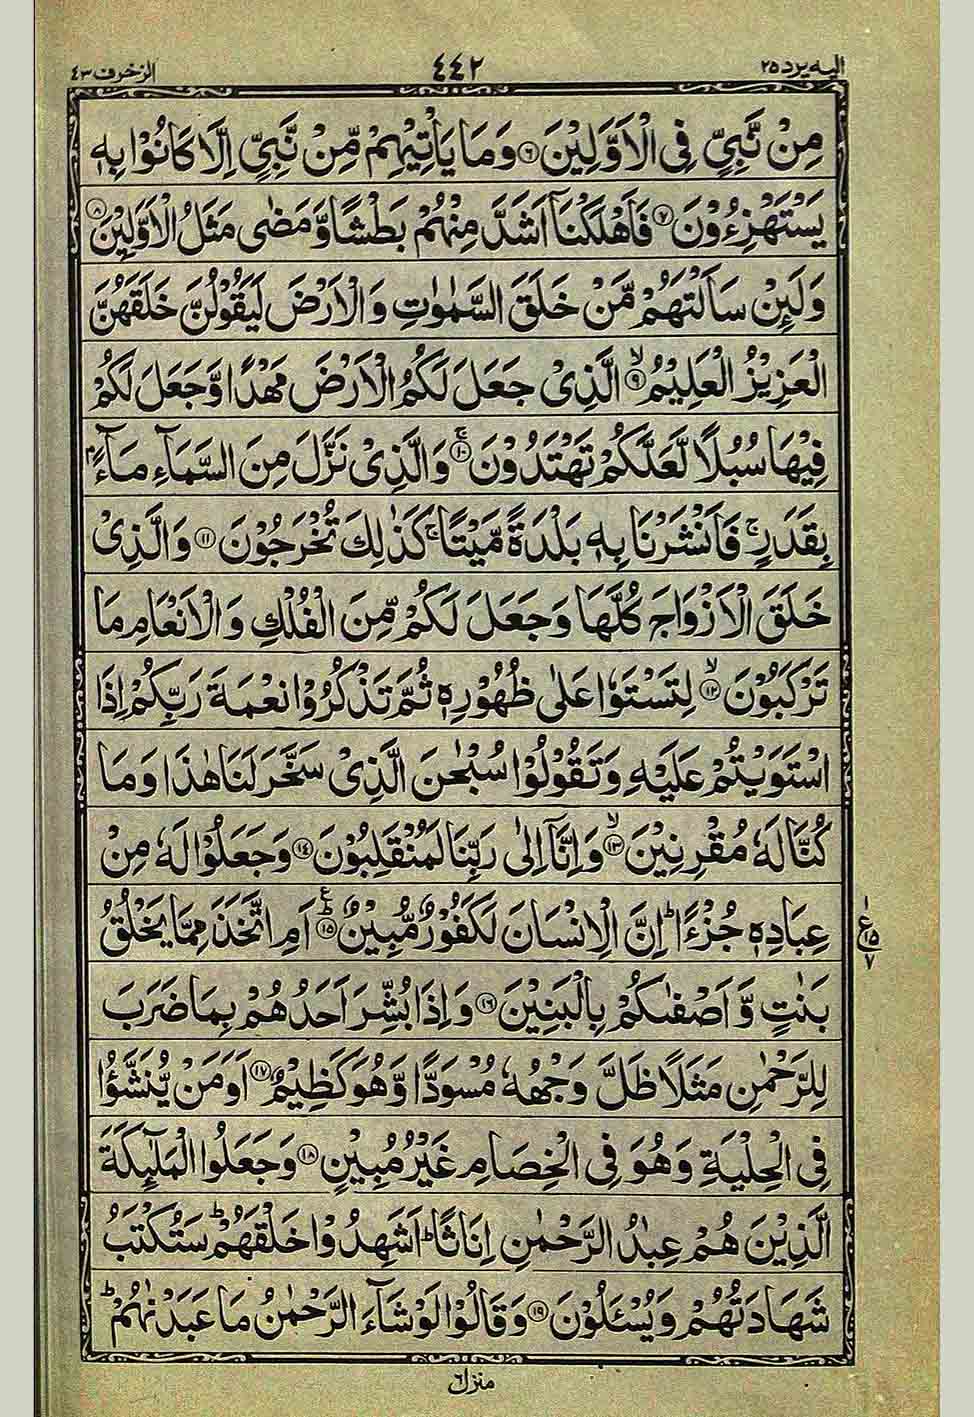 الیه یرد ۲۵
٤٤٢
الزخرف ٤٣
مِنْ نَّبِیٍّ فِی الْاَوَّلِیْنَ ۶ وَمَا یَاْتِیْهِمْ مِّنْ نَّبِیٍّ اِلَّا كَانُوْا بِهٖ
یَسْتَهْزِءُوْنَ ۷ فَاَهْلَكْنَاۤ اَشَدَّ مِنْهُمْ بَطْشًا وَّ مَضٰی مَثَلُ الْاَوَّلِیْنَ ۸
وَلَىِٕنْ سَاَلْتَهُمْ مَّنْ خَلَقَ السَّمٰوٰتِ وَالْاَرْضَ لَیَقُوْلُنَّ خَلَقَهُنَّ
الْعَزِیْزُ الْعَلِیْمُ ۙ۹ الَّذِیْ جَعَلَ لَكُمُ الْاَرْضَ مَهْدًا وَّجَعَلَ لَكُمْ
فِیْهَا سُبُلًا لَّعَلَّكُمْ تَهْتَدُوْنَ ۚ۱۰ وَالَّذِیْ نَزَّلَ مِنَ السَّمَآءِ مَآءًۢ
بِقَدَرٍ ۚ فَاَنْشَرْنَا بِهٖ بَلْدَةً مَّیْتًا ۚ كَذٰلِكَ تُخْرَجُوْنَ ۱۱ وَالَّذِیْ
خَلَقَ الْاَزْوَاجَ كُلَّهَا وَجَعَلَ لَكُمْ مِّنَ الْفُلْكِ وَالْاَنْعَامِ مَا
تَرْكَبُوْنَ ۙ۱۲ لِتَسْتَوٗا عَلٰی ظُهُوْرِهٖ ثُمَّ تَذْكُرُوْا نِعْمَةَ رَبِّكُمْ اِذَا
اسْتَوَیْتُمْ عَلَیْهِ وَتَقُوْلُوْا سُبْحٰنَ الَّذِیْ سَخَّرَ لَنَا هٰذَا وَمَا
كُنَّا لَهٗ مُقْرِنِیْنَ ۙ۱۳ وَاِنَّاۤ اِلٰی رَبِّنَا لَمُنْقَلِبُوْنَ ۱۴ وَجَعَلُوْا لَهٗ مِنْ
عِبَادِهٖ جُزْءًا ؕ اِنَّ الْاِنْسَانَ لَكَفُوْرٌ مُّبِیْنٌ ؕ۱۵ اَمِ اتَّخَذَ مِمَّا یَخْلُقُ
ع ۱۵ ۷
بَنٰتٍ وَّاَصْفٰىكُمْ بِالْبَنِیْنَ ۱۶ وَاِذَا بُشِّرَ اَحَدُهُمْ بِمَا ضَرَبَ
لِلرَّحْمٰنِ مَثَلًا ظَلَّ وَجْهُهٗ مُسْوَدًّا وَّهُوَ كَظِیْمٌ ۱۷ اَوَمَنْ یُّنَشَّؤُا
فِی الْحِلْیَةِ وَهُوَ فِی الْخِصَامِ غَیْرُ مُبِیْنٍ ۱۸ وَجَعَلُوا الْمَلٰٓىِٕكَةَ
الَّذِیْنَ هُمْ عِبٰدُ الرَّحْمٰنِ اِنَاثًا ؕ اَشَهِدُوْا خَلْقَهُمْ ؕ سَتُكْتَبُ
شَهَادَتُهُمْ وَیُسْـَٔلُوْنَ ۱۹ وَقَالُوْا لَوْ شَآءَ الرَّحْمٰنُ مَا عَبَدْنٰهُمْ ؕ
منزل ٦